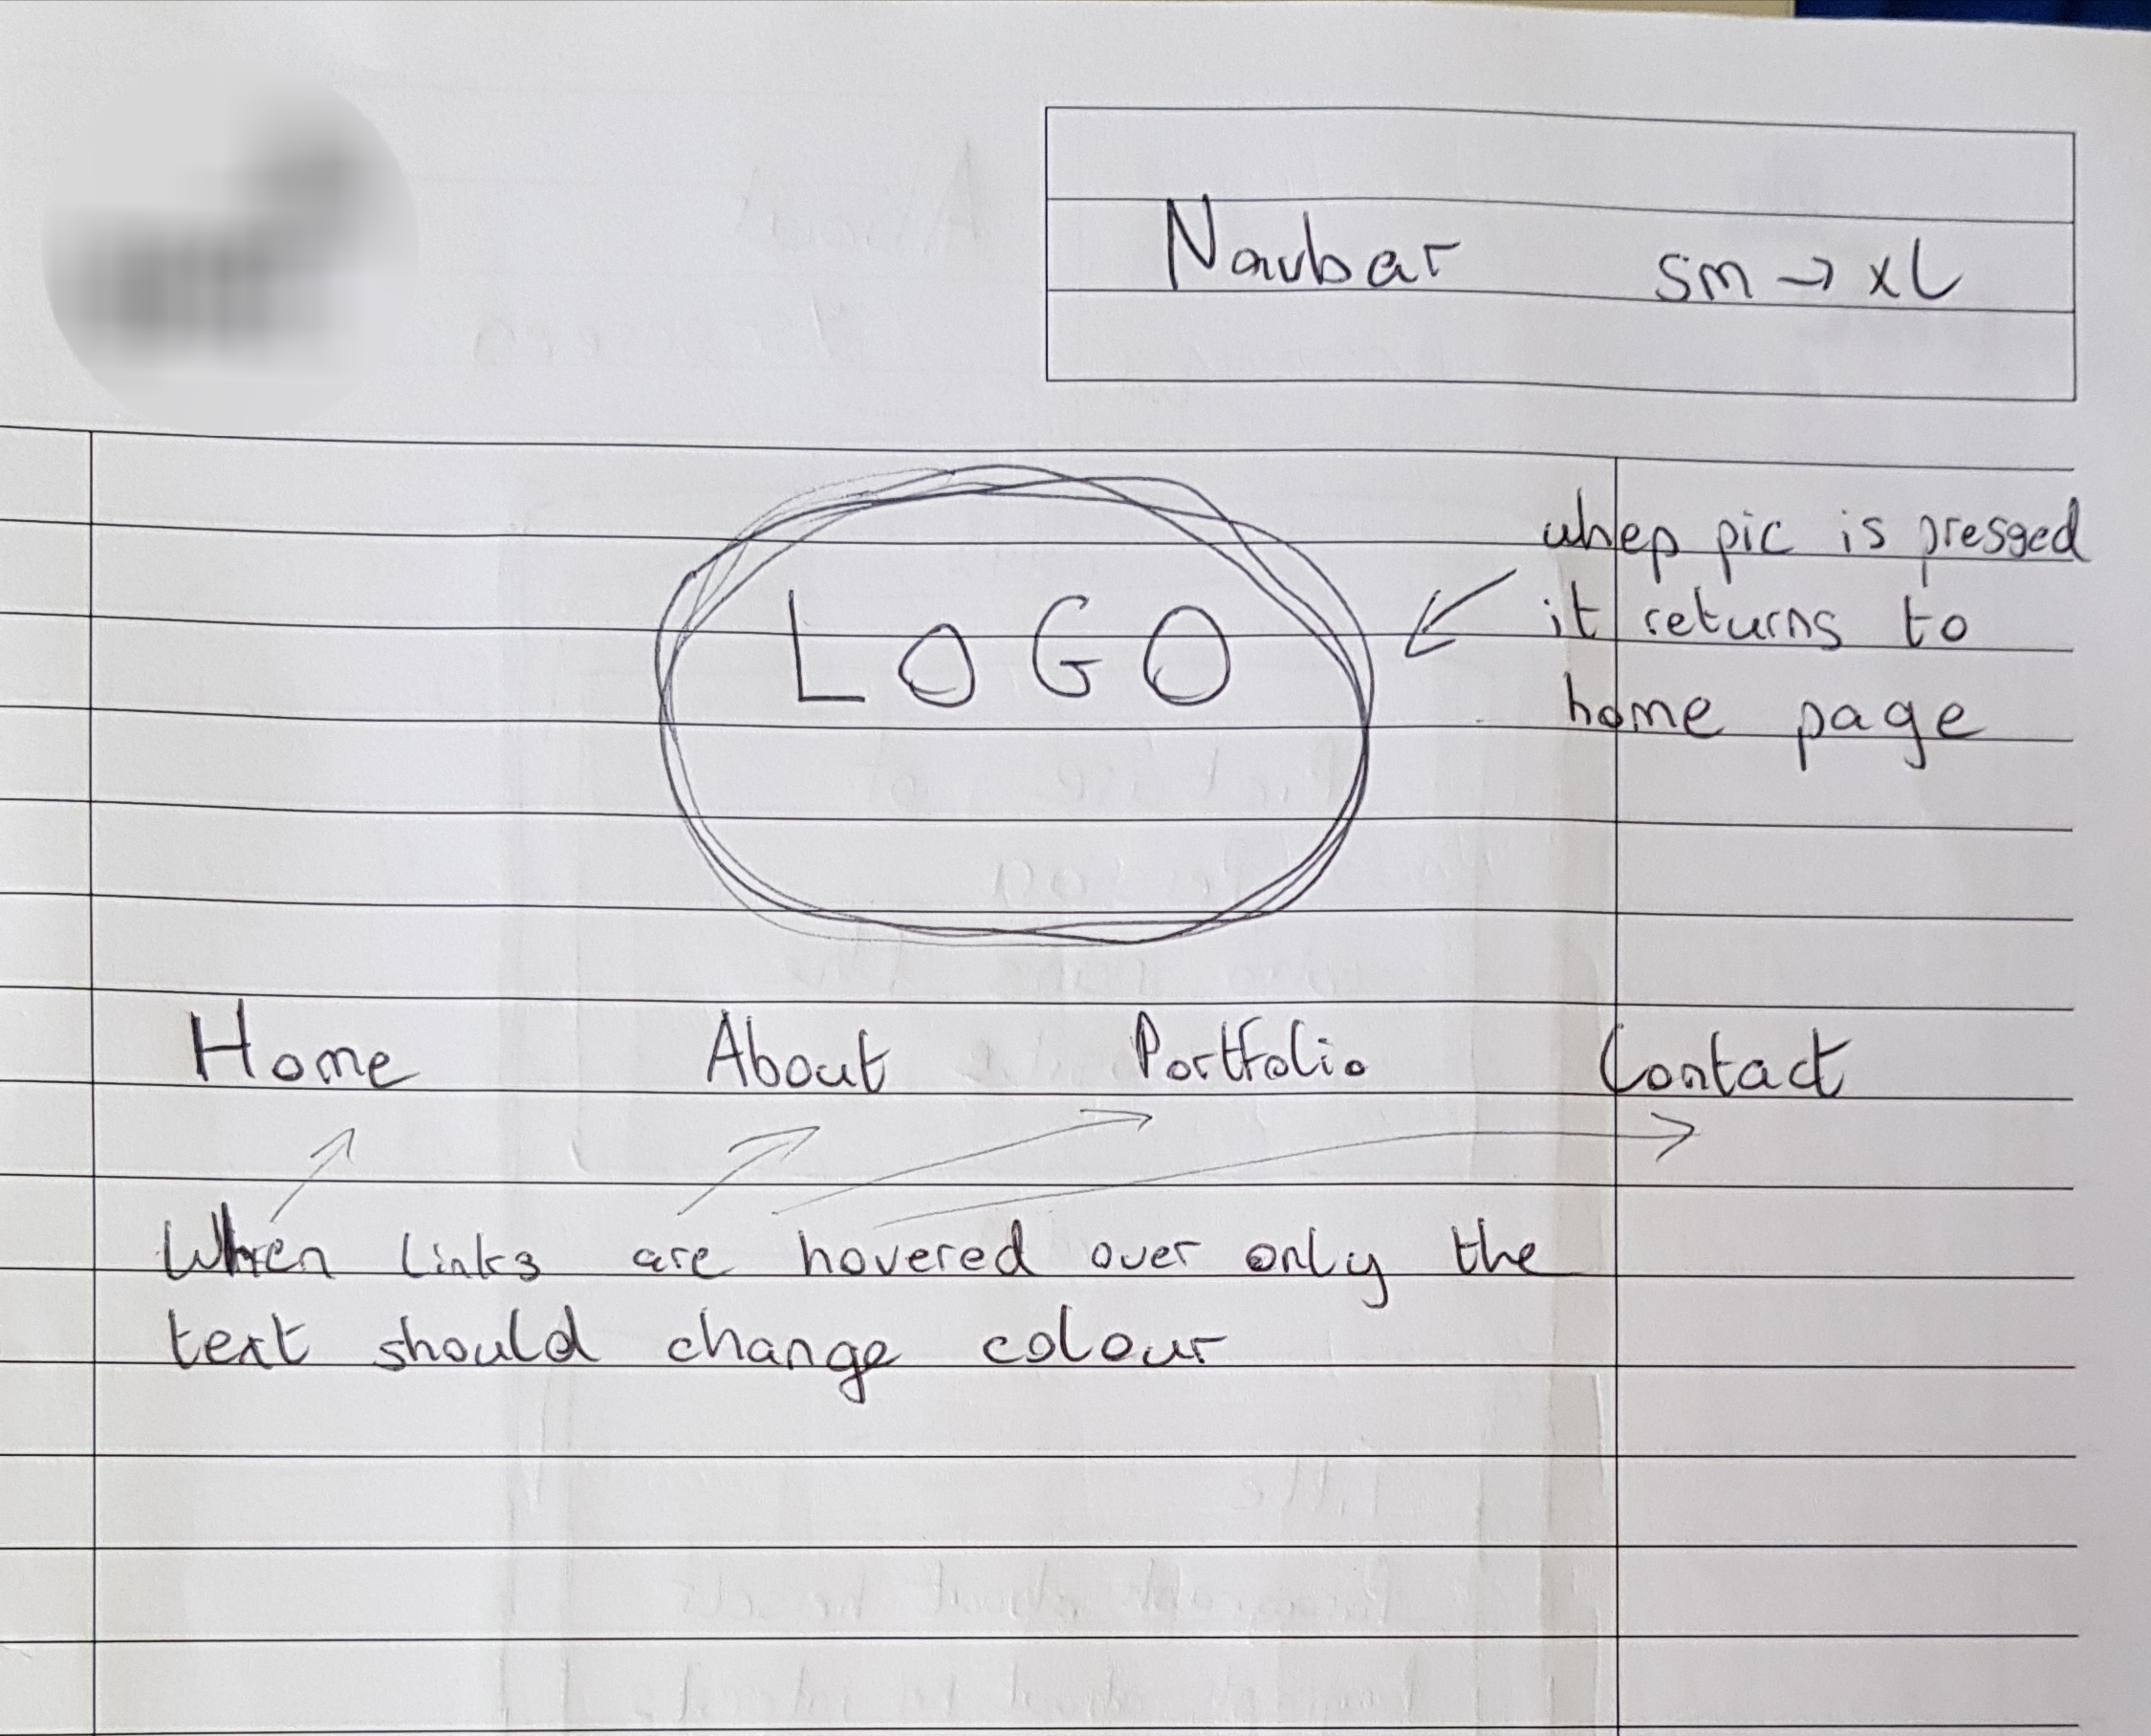 Navbar sm → xl
LOGO
when pic is pressed
it returns to
home page
Home About Portfolio Contact
When links are hovered over only the
text should change colour